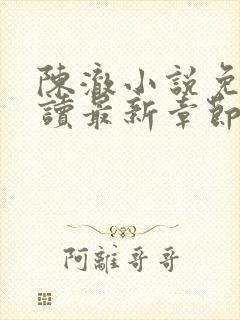 陳澈小說免
讀最新章節
阿離哥哥